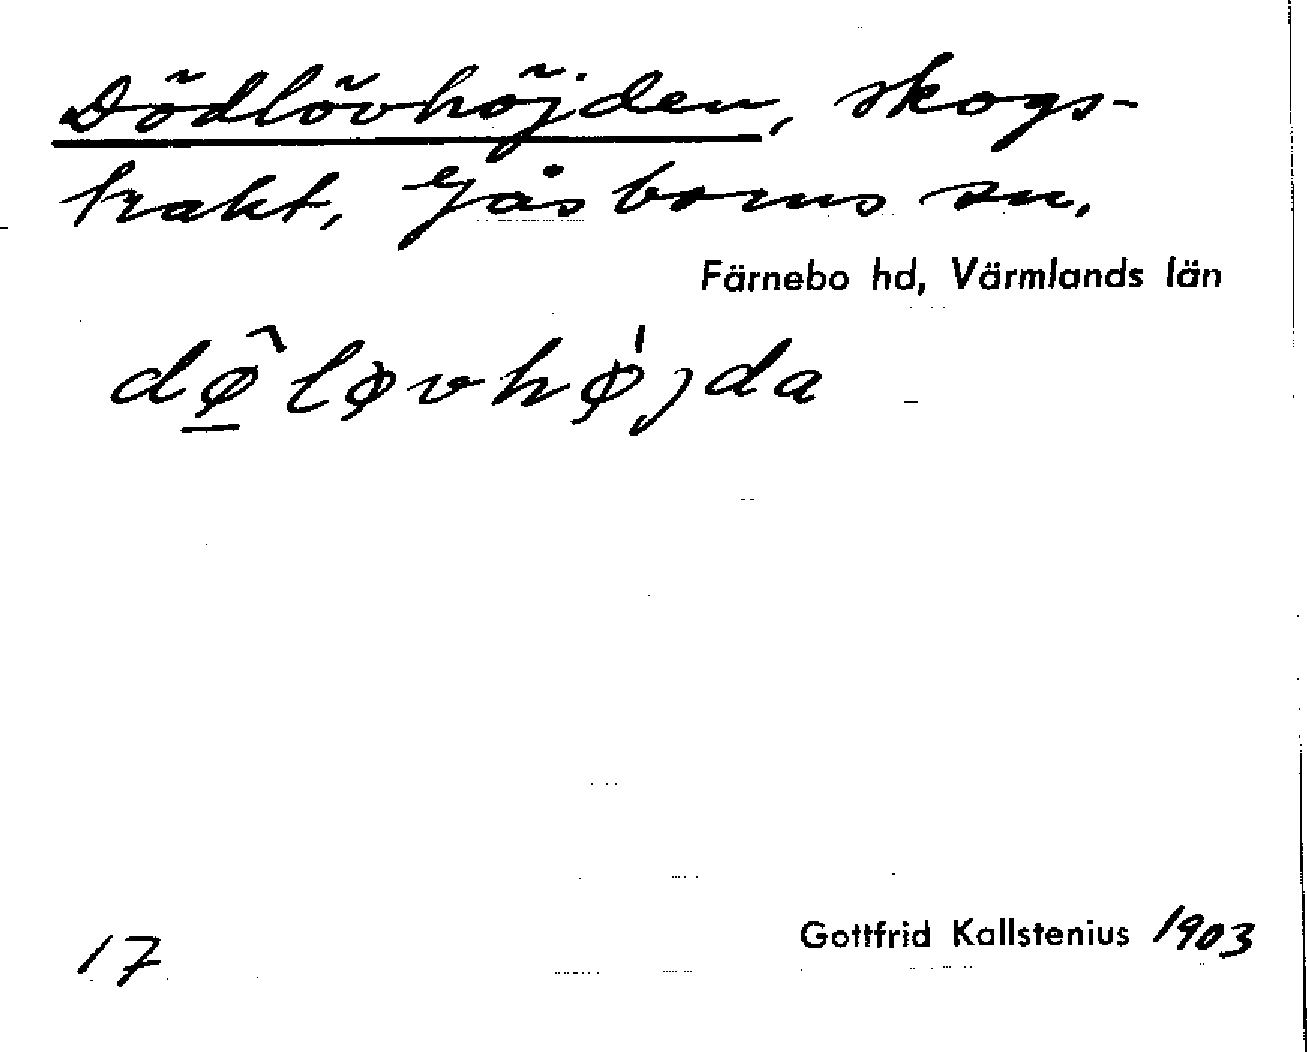 Dödlövhöjden, skogs-
trakt, Gåsborns sn.
Färnebo hd, Värmlands län
dø̠̂løvhø̍jda
17
Gottfrid Kallstenius 1903